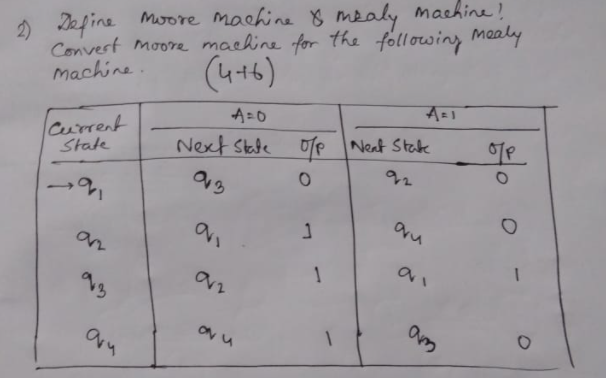 2) Define Moore Machine & mealy machine!
Convert Moore machine for the following Mealy
Machine. (4+6)
A=0 A=1
Current State Next State O/P Next State O/P
→q1 q3 0 q2 0
q2 q1 1 q4 0
q3 q2 1 q1 1
q4 q4 1 q3 0